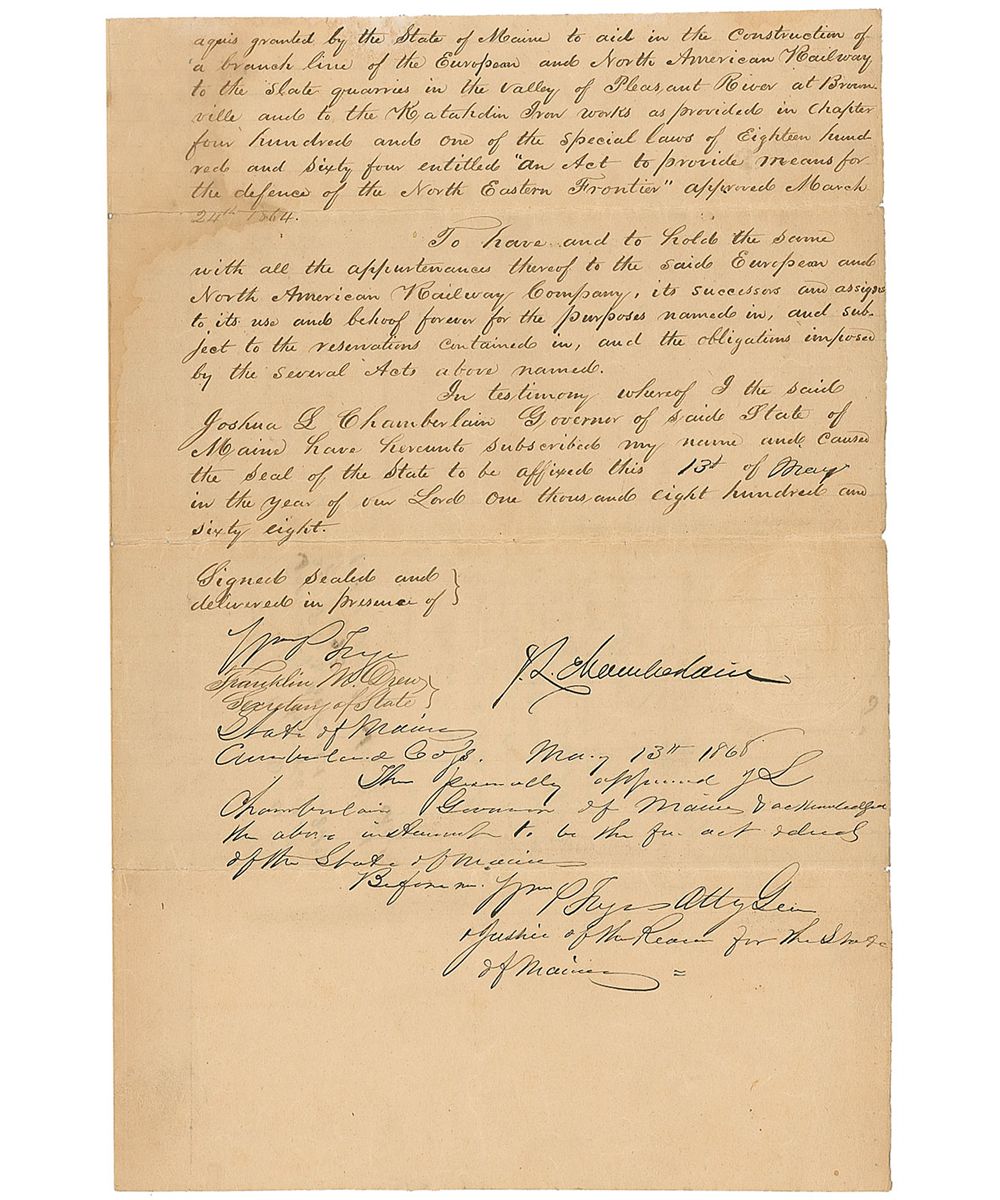 aquis granted by the State of Maine to aid in the construction of
a branch line of the European and North American Railway
to the slate quarries in the valley of Pleasant River at Brown-
ville and to the Katahdin Iron works as provided in chapter
four hundred and one of the special laws of Eighteen hund
red and sixty four entitled "An Act to provide means for
the defence of the North Eastern Frontier" approved March
24th 1864.
To have and to hold the same
with all the appurtenances thereof to the said European and
North American Railway Company, its successors and assigns
to its use and behoof forever for the purposes named in, and sub-
ject to the reservations contained in, and the obligations imposed
by the several Acts above named.
In testimony whereof I the said
Joshua L Chamberlain Governor of said State of
Maine have hereunto subscribed my name and caused
the seal of the State to be affixed this 13th of May
in the year of our Lord one thousand eight hundred and
sixty eight.
Signed sealed and
delivered in presence of
Wm P Frye
J. L. Chamberlain
Franklin M Drew
Secretary of State
State of Maine
Cumberland Co ss. May 13th 1868
Then personally appeared J L
Chamberlain Governor of Maine & acknowledged
the above instrument to be the free act & deed
of the State of Maine
Before me. Wm P Frye Atty Gen
& Justice of the Peace for the State
of Maine =